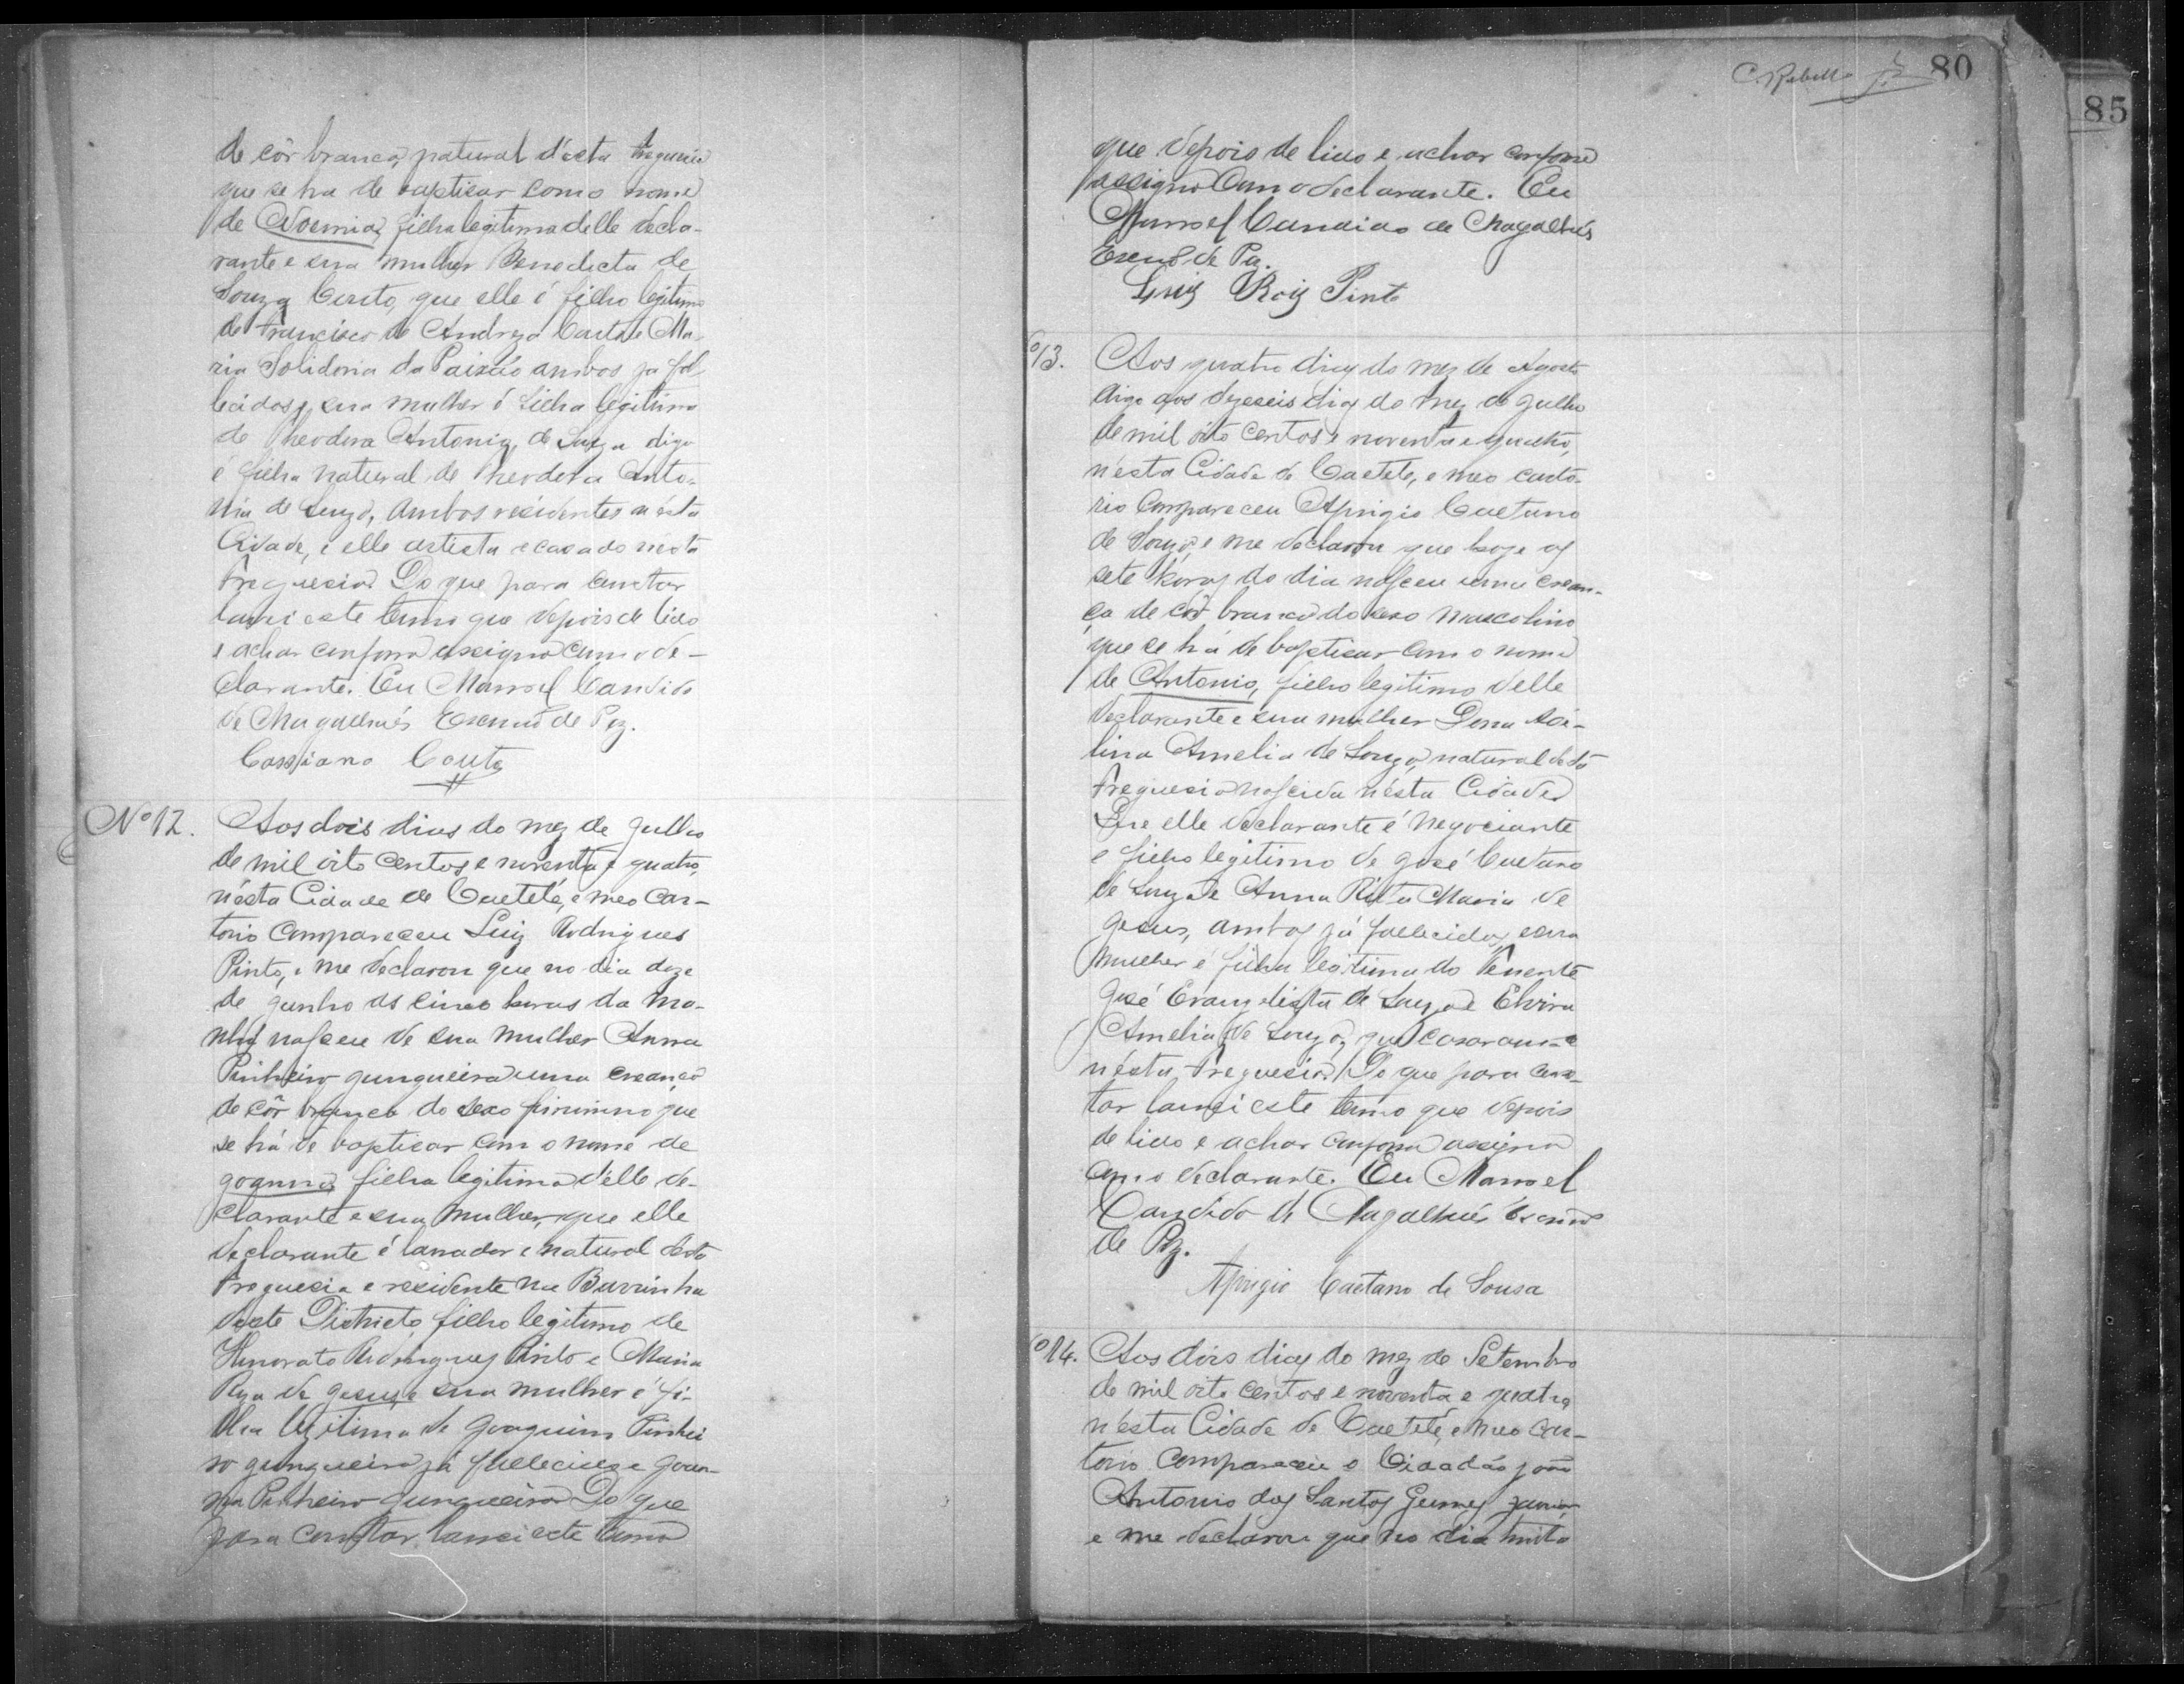 de côr branca, natural d'esta freguesia
que se ha de baptisar como nome
de Noemia, filha legitima delle decla-
rante e sua mulher Benedicta de
Souza Couto, que elle é filho legitimo
de Francisco de Couto e Ma-
ria da Paixão ambos ja fal-
lecidos, e sua mulher é filha legitima
de Theodora Antonia de Souza digo
é filha natural de Theodora Anto-
nia de Souza, ambos residentes nésta
Cidade, e elle artista e casado nesta
freguesia. Do que para constar
lavrei este termo que depois de lido
e achar conforme assigna com o de-
clarante. Eu Manoel Candido
de Magalhães Escrivão de Paz.
Cassiano Couto
Nº 12. Aos dois dias do mez de Julho
de mil oito centos e noventa e quatro,
nésta Cidade de Caeteté, e meo car-
torio compareceu Luiz Rodrigues
Pinto, e me declarou que no dia doze
de Junho as cinco horas da ma-
nhã nasceu de sua mulher Anna
Pinheiro Junqueira uma creança
de côr branca do sexo feminino que
se há de baptisar com o nome de
Joanna, filha legitima délle de-
clarante e sua mulher, que elle
declarante é lavrador e natural desta
freguesia e residente na Barrinha
deste Districto, filho legitimo de
Honorato Rodrigues Pinto e Maria
Roza de Jesus, e sua mulher é fi-
lha legitima de Joaquim Pinhei
ro Junqueira já fallecido e Joan-
na Pinheiro Junqueira. Do que
para constar, lavrei este termo
C. Rabello 80
85
que depois de lido e achar conforme
assigna com o declarante. Eu
Manoel Candido de Magalhães
Escrm de Paz.
Luiz Roiz Pinto
º13. Aos quatro dias do mez de Agosto
digo aos dezeseis dias do mez de Julho
de mil oito centos e noventa e quatro,
n'ésta Cidade de Caeteté, e meo carto-
rio compareceu Aprigio Caetano
de Souza, e me declarou que hoje as
sete horas do dia nasceu uma crean-
ça de côr branca do sexo mascolino
que se há de baptisar com o nome
de Antonio, filho legitimo delle
declarante e sua mulher Dona
lina Amelia de Souza, natural desta
freguesia nascida nésta Cidade.
Que elle declarante é negociante
e filho legitimo de José Caetano
de Souza e Anna Rita Maria de
Jesus, ambos já fallecidos, e sua
mulher é filha legitima do Tenente
José Evangelista de Souza e Elvira
Amelia de Souza, que casaram-se
nésta freguesia. Do que para cons-
tar lavrei este termo que depois
de lido e achar conforme assigna
com o declarante. Eu Manoel
Candido de Magalhães Escrivão
de Paz.
Aprigio Caetano de Sousa
º14. Aos dois dias do mez de Setembro
de mil oito centos e noventa e quatro,
n'ésta Cidade de Caeteté, e meo car-
torio compareceu o Cidadão João
Antonio dos Santos Gumes Junior
e me declarou que no dia trinta